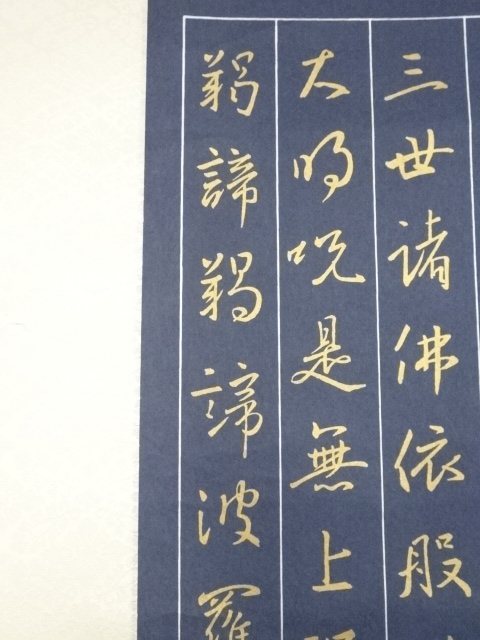 三世諸佛依般
大明咒是無上
羯諦羯諦波羅